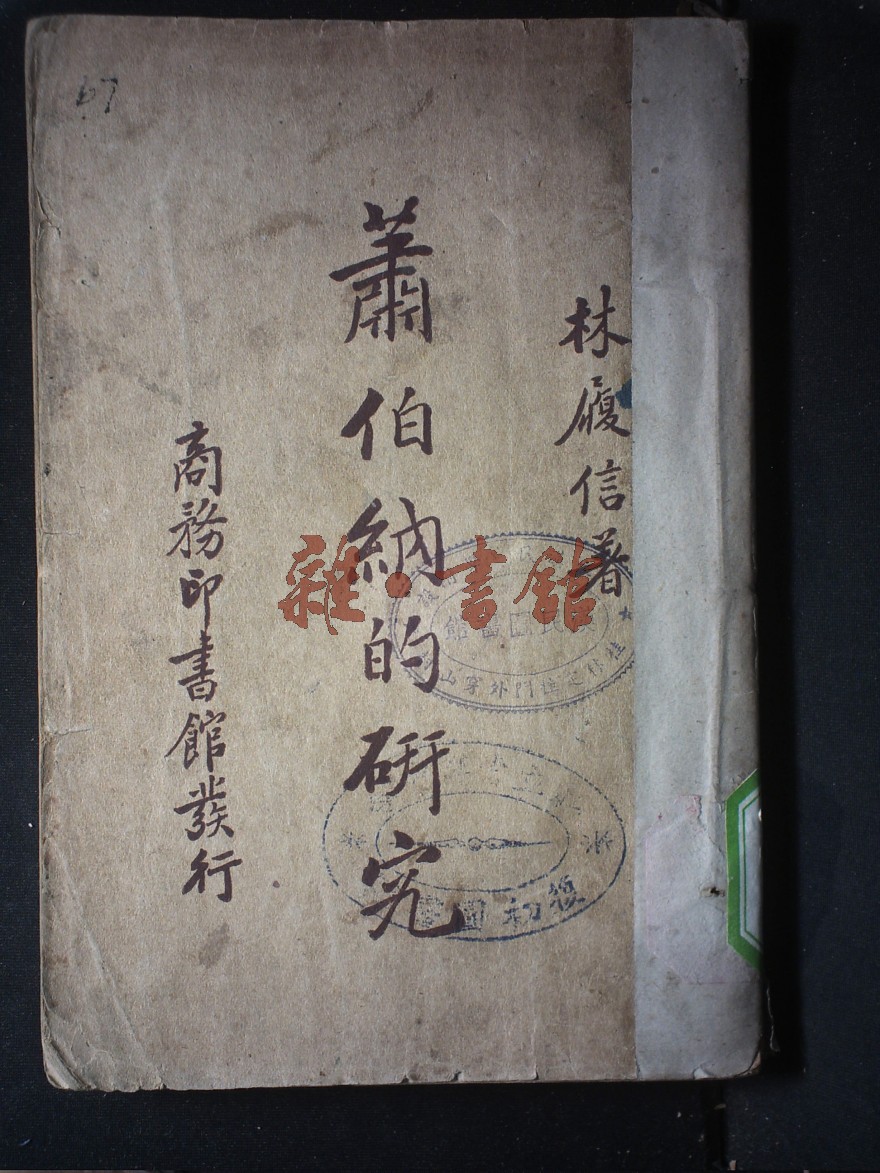 林履信著
蕭伯納的研究
商務印書館發行
67
雜·書館